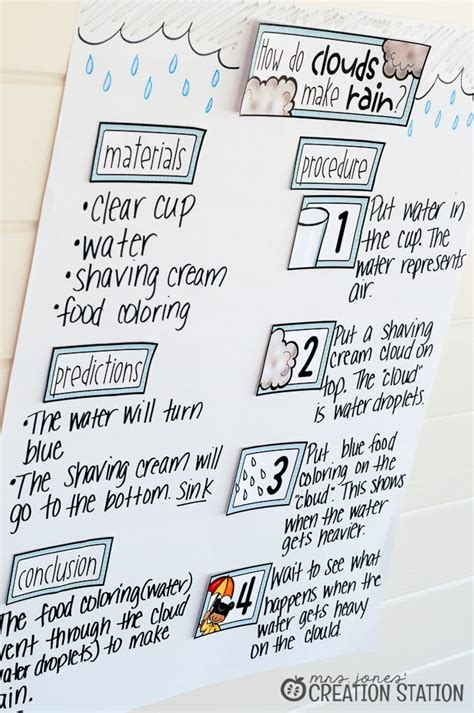 How do clouds
make rain?
materials
•clear cup
•water
•shaving cream
•food coloring
predictions
•The water will turn
blue
•The shaving cream will
go to the bottom. sink
conclusion
The food coloring(water)
went through the cloud
water droplets) to make
rain.
procedure
1
Put water in
the cup. The
water represents
air.
2
Put a shaving
cream cloud on
top. The "cloud"
is water droplets.
3
Put blue food
coloring on the
"cloud". This shows
when the water
gets heavier.
4
Wait to see what
happens when the
water gets heavy
on the clould.
mrs. jones'
CREATION STATION